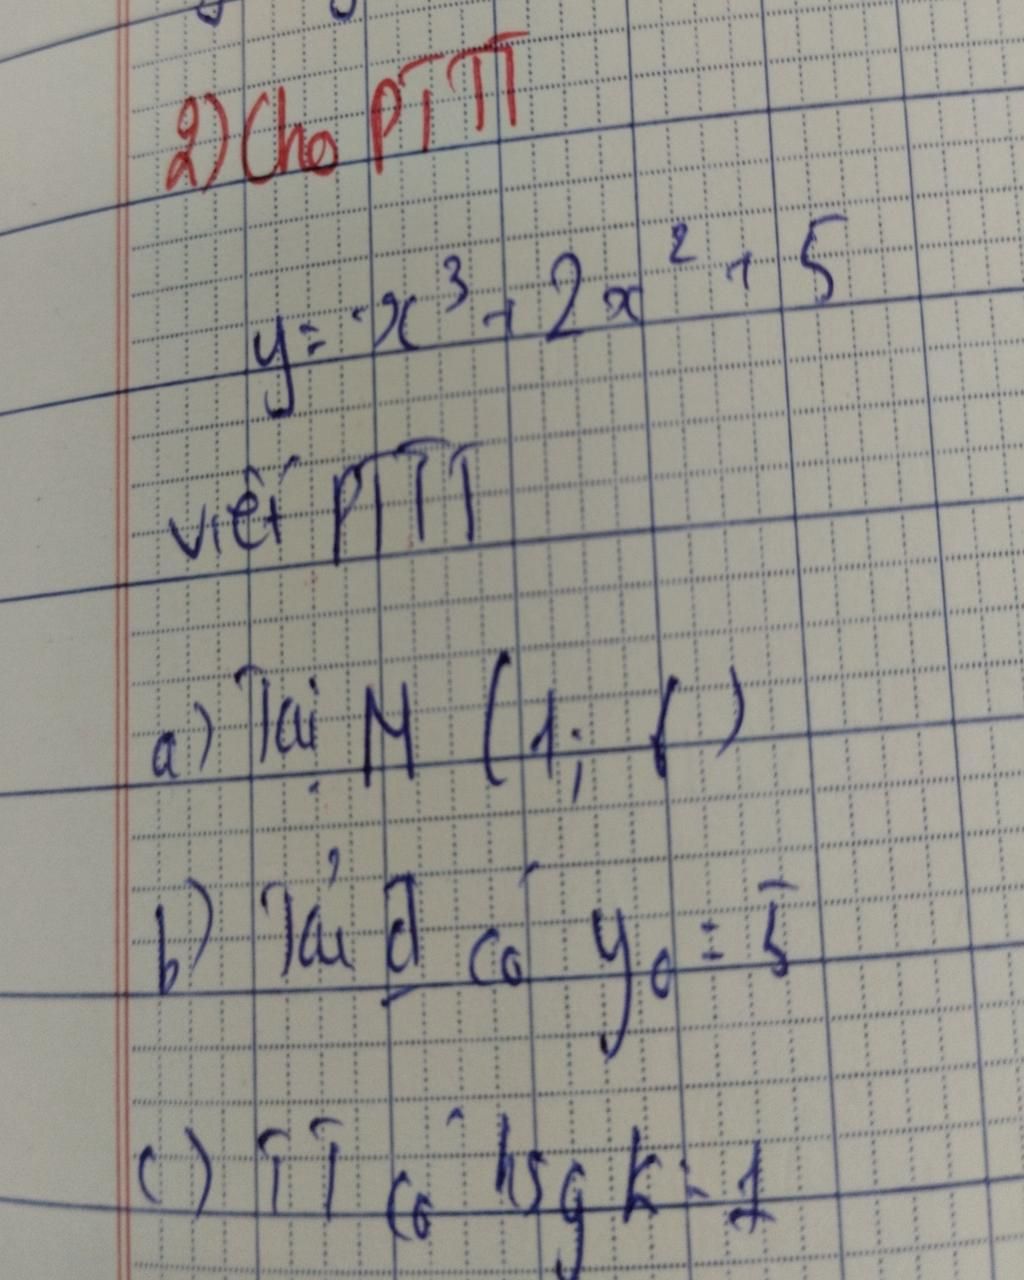 2) Cho PTTT
y = -x³ + 2x² + 5
viết PTTT
a) Tại M (1; )
b) Tại đ có y₀ = 5
c) TT có hsg k = 1